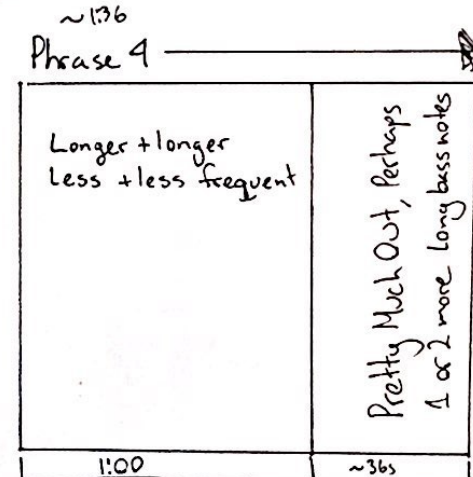 ~1:36
Phrase 4
Longer + longer
Less + less frequent
Pretty Much Out, Perhaps
1 or 2 more Long bass notes
1:00
~36s